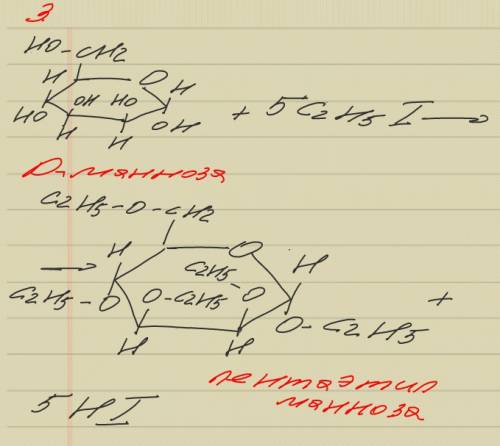 3
HO-CH2
H O H
HO OH HO OH + 5C2H5I →
H H
D-манноза
C2H5-O-CH2
H O H
→ C2H5-O O-C2H5 C2H5-O O-C2H5 +
H H
5HI пентаэтил
манноза